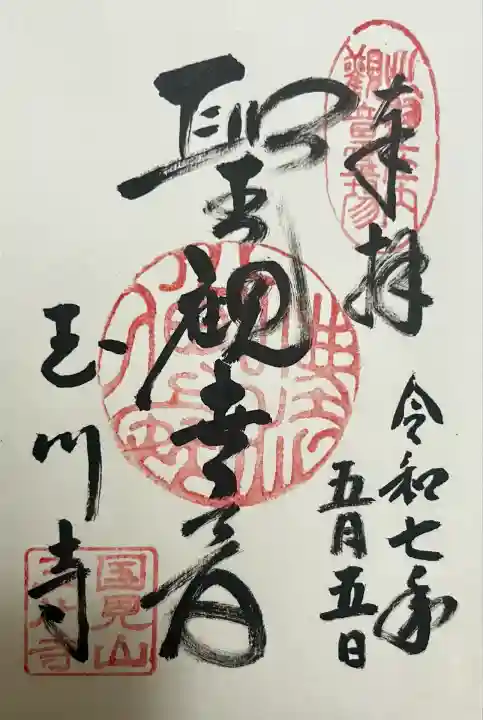 奉拝
令和七年
五月五日
聖観世音
玉川寺
観音霊場
国見山
玉川寺